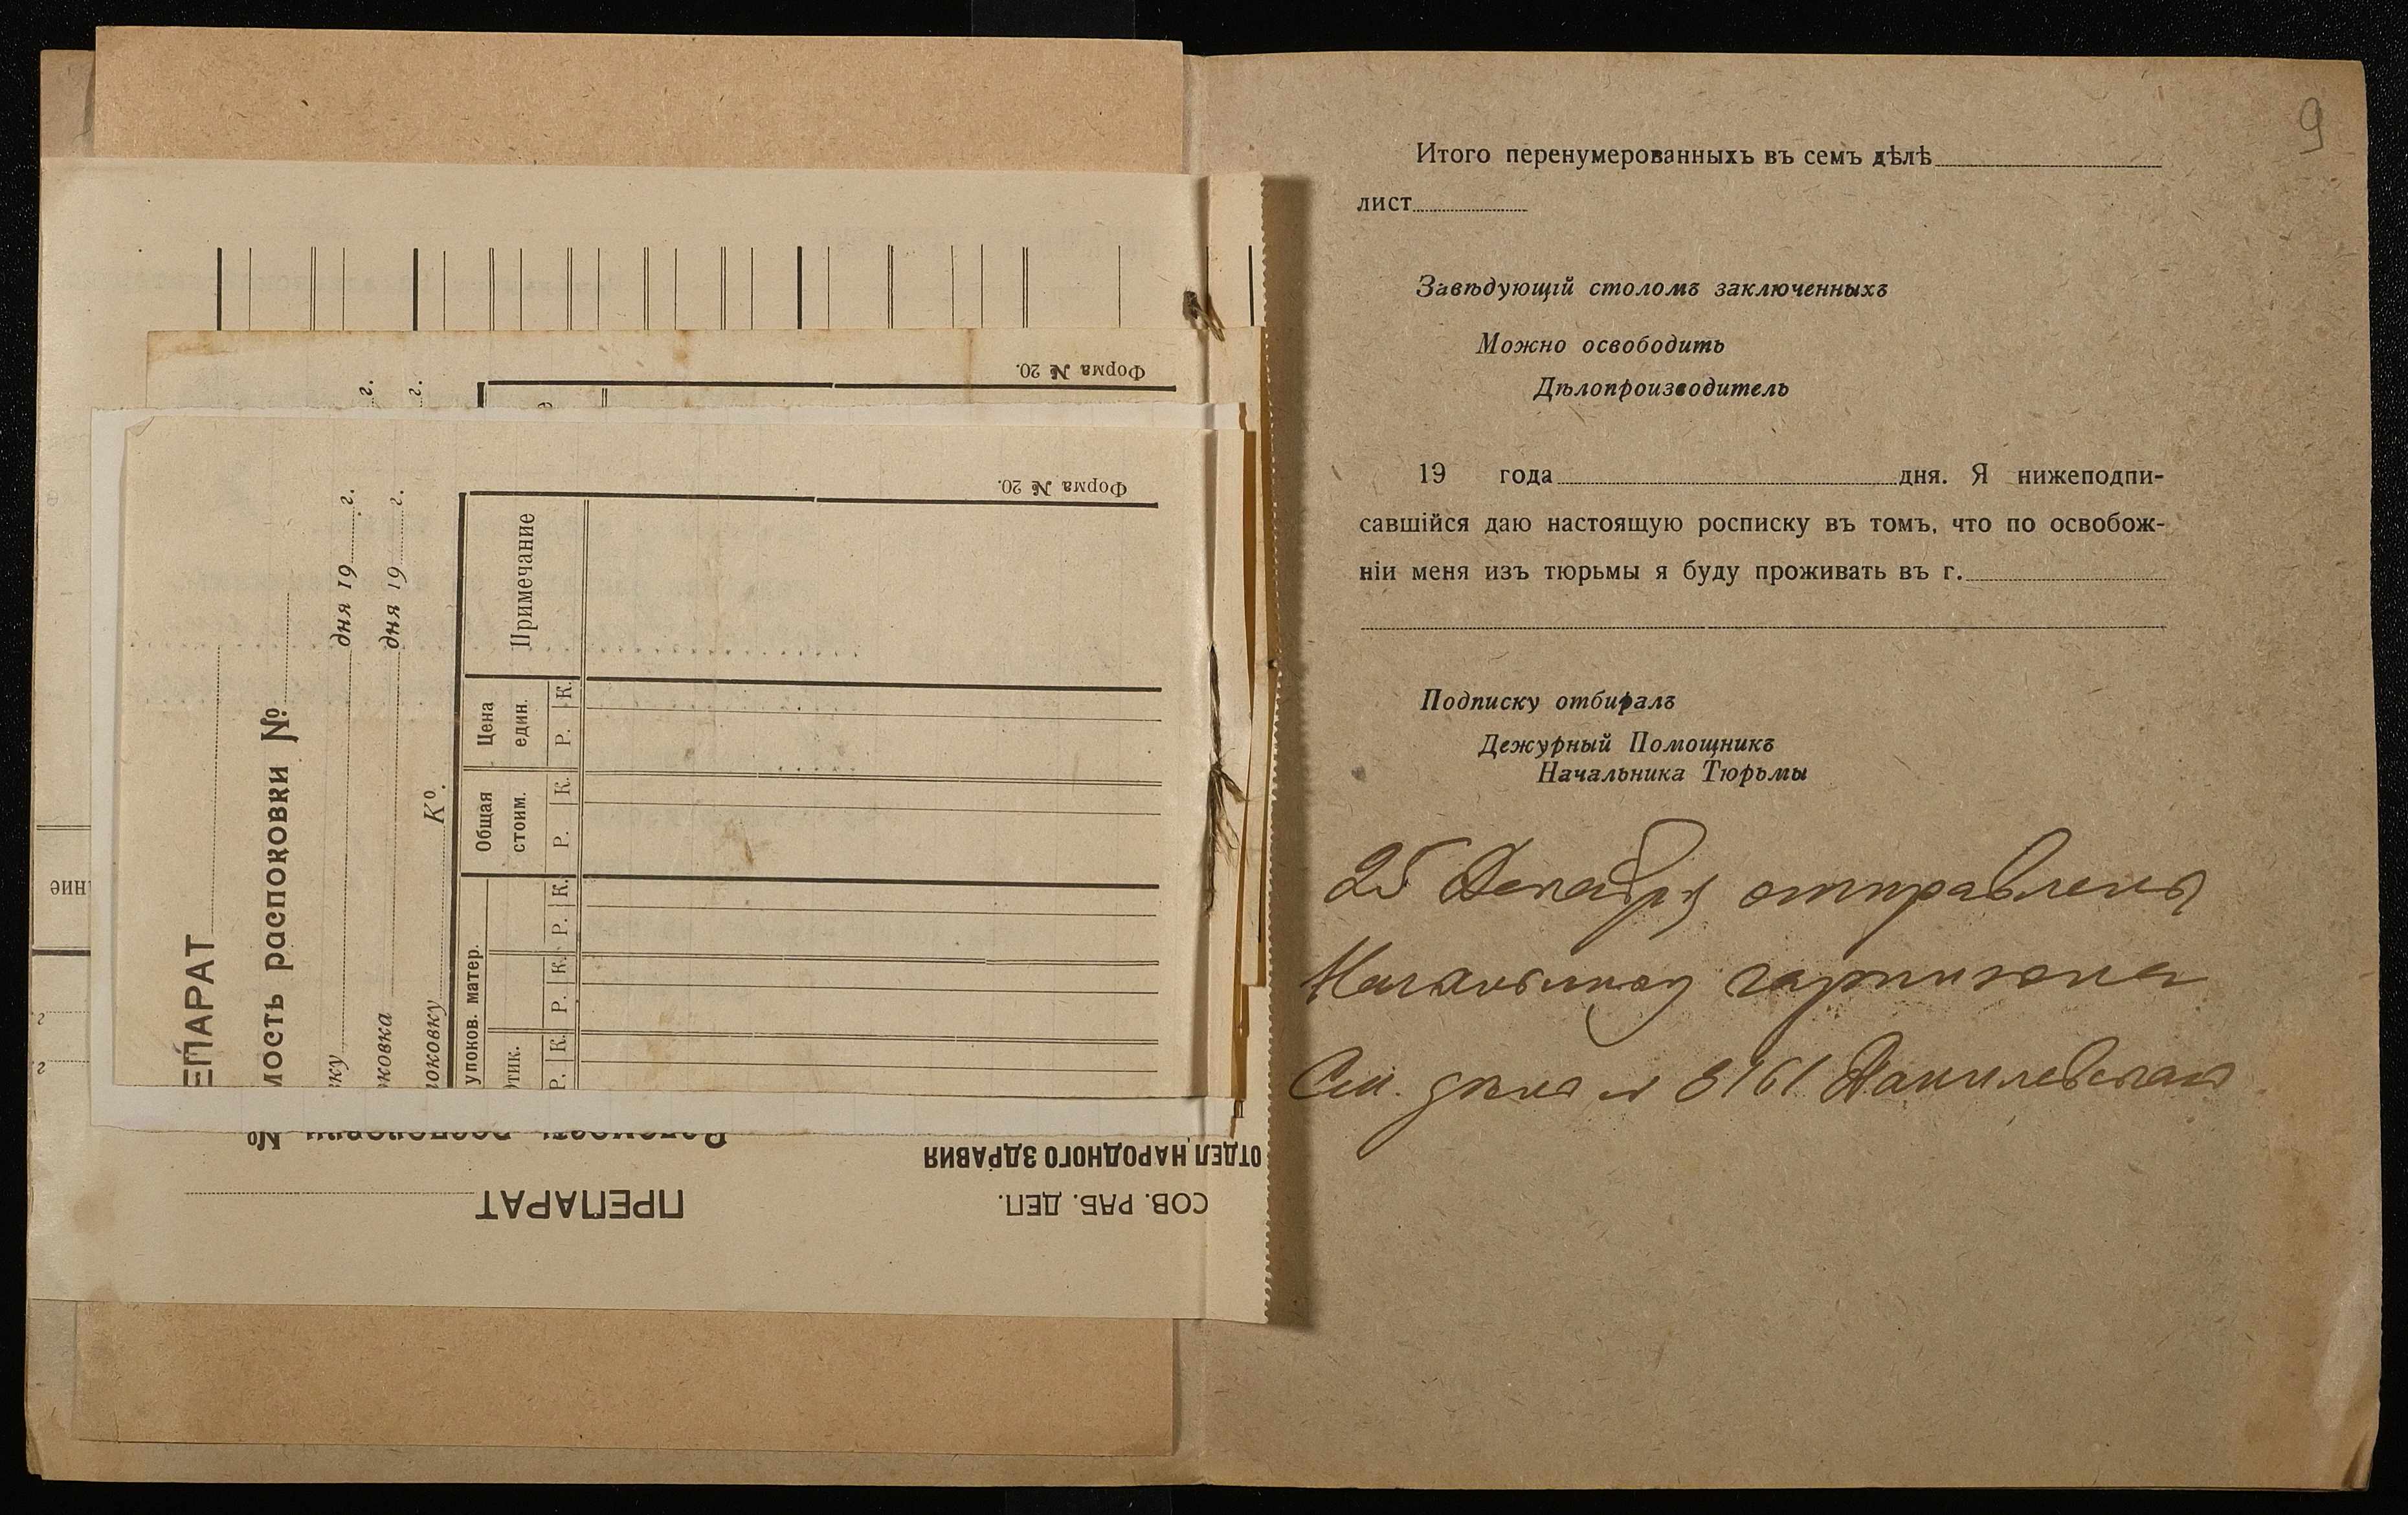 Форма № 20.
г.
г.
Форма № 20.
ЕПАРАТ
мость распоковки №
ку дня 19 г.
ковка дня 19 г.
поковку Ко.
Примечание
Цена един.
Р. К.
Общая стоим.
Р. К.
упоков. матер.
Р. К.
Р. К.
тик.
Р. К.
ние
г
г
Ведомость распоковки №
ОТДЕЛ НАРОДНОГО ЗДРАВИЯ
ПРЕПАРАТ
СОВ. РАБ. ДЕП.
9
Итого перенумерованныхъ въ семъ дѣлѣ
лист
Завѣдующій столомъ заключенныхъ
Можно освободить
Дѣлопроизводитель
19 года дня. Я нижеподпи-
савшійся даю настоящую росписку въ томъ, что по освобож-
ніи меня изъ тюрьмы я буду проживать въ г.
Подписку отбиралъ
Дежурный Помощникъ
Начальника Тюрьмы
25 Декабря отправленъ
Начальнику гарнизона
См. дѣло № 3161 Данилевскаго